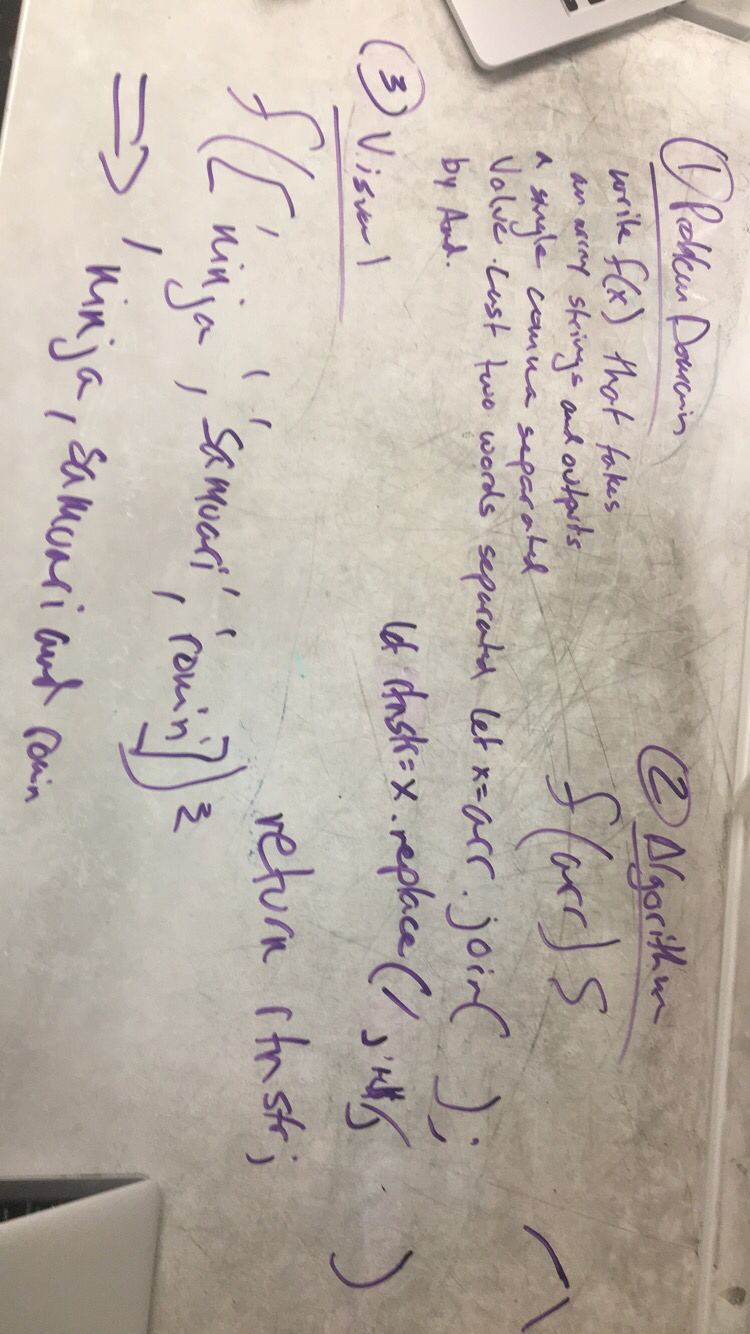 ① Problem Domain
write f(x) that takes
an array strings and outputs
a single comma separated
Value. Last two words separated
by And.
② Algorithm
f(arr) {
let x = arr.join( );
let rtnstr = x.replace(/ )
return rtnstr;
③ Visual
f(['ninja', 'samuari', 'ronin'])
⇒ 'ninja, samurai and ronin